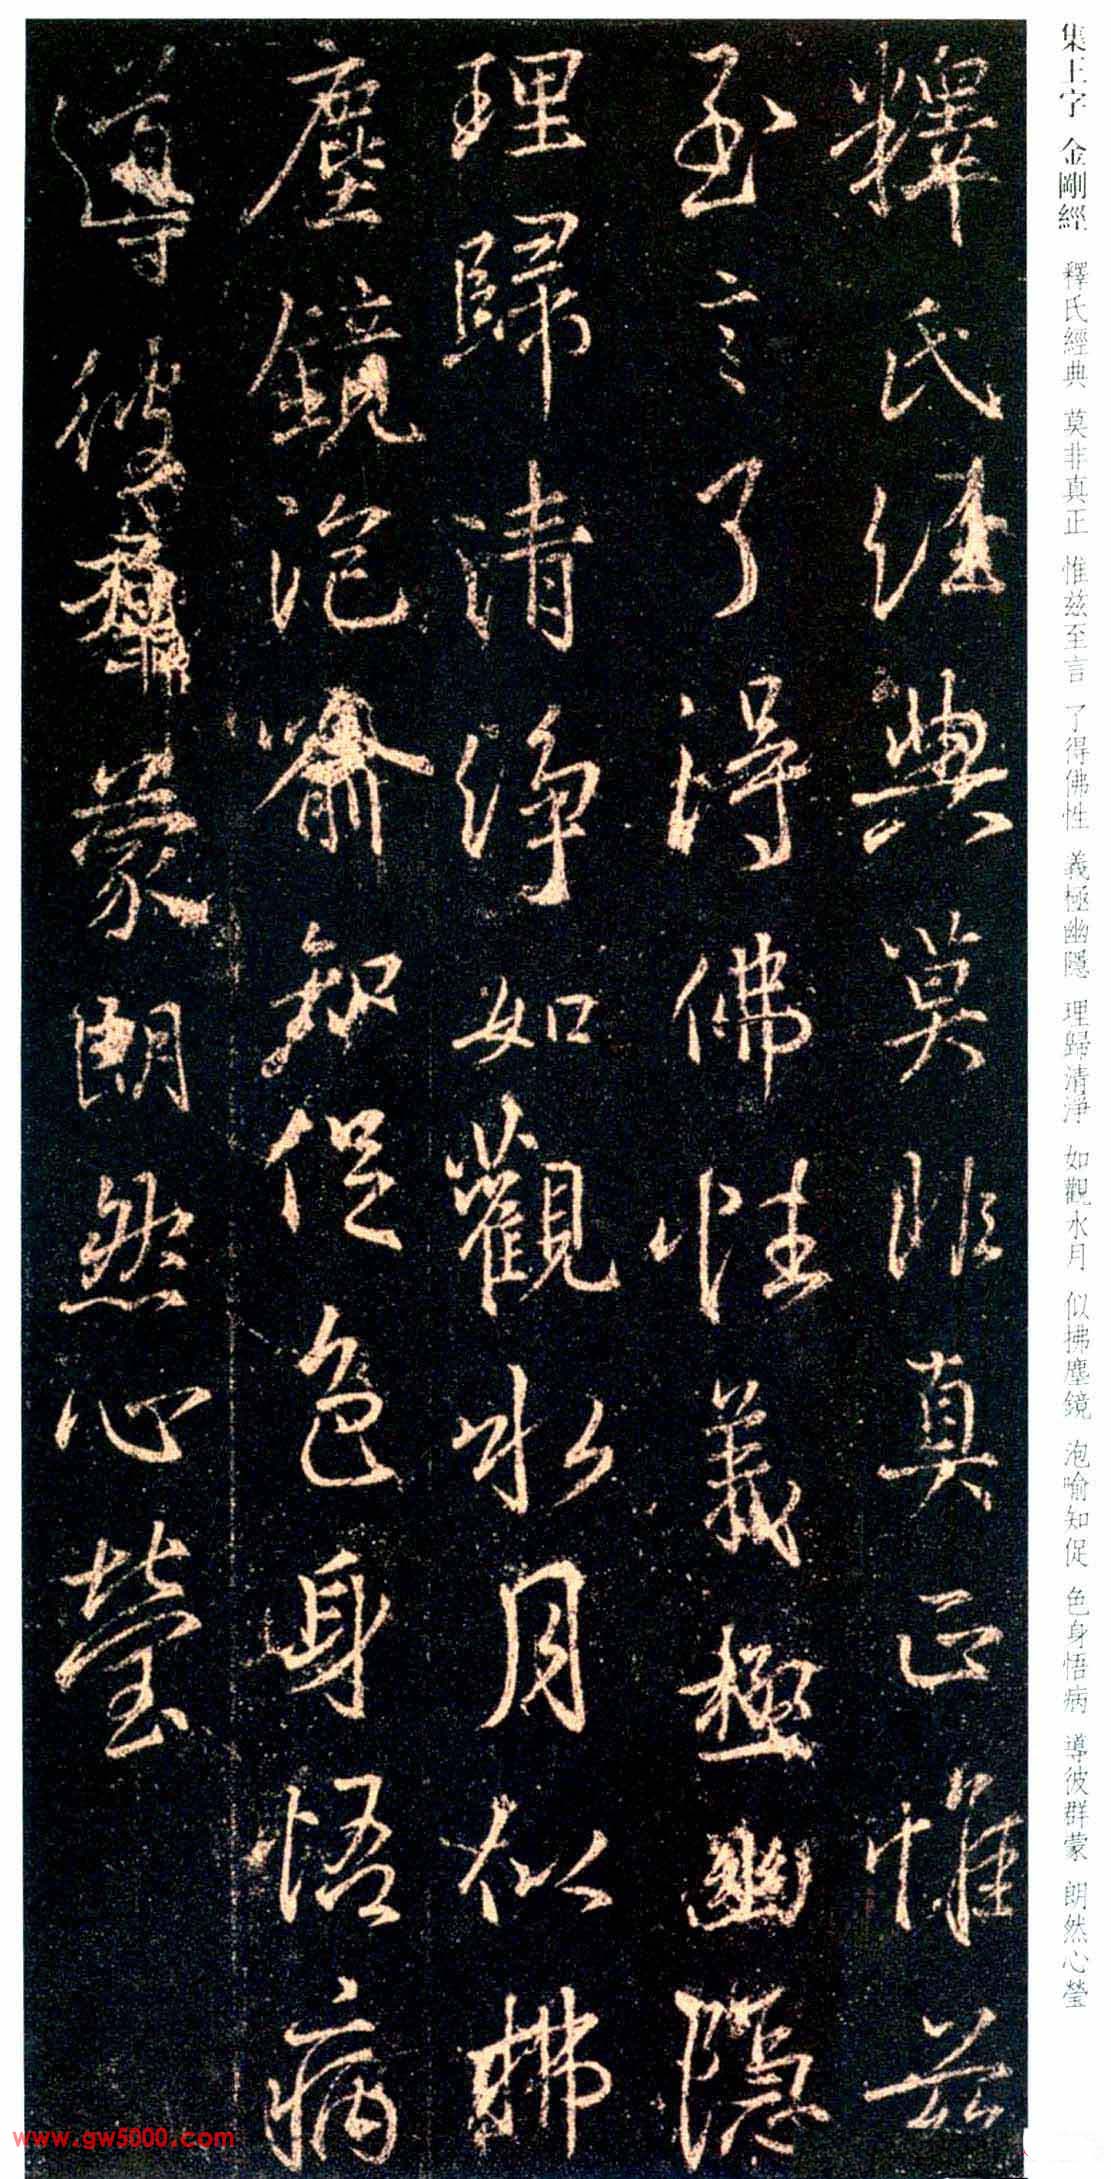 集王字 金剛經 釋氏經典 莫非真正 惟兹至言 了得佛性 義極幽隱 理歸清淨 如觀水月 似拂塵鏡 泡喻知促 色身悟病 導彼群蒙 朗然心瑩
釋氏經典莫非真正惟茲
至言了得佛性義極幽隱
理歸清淨如觀水月似拂
塵鏡泡喻知促色身悟病
導彼群蒙朗然心瑩
www.gw5000.com